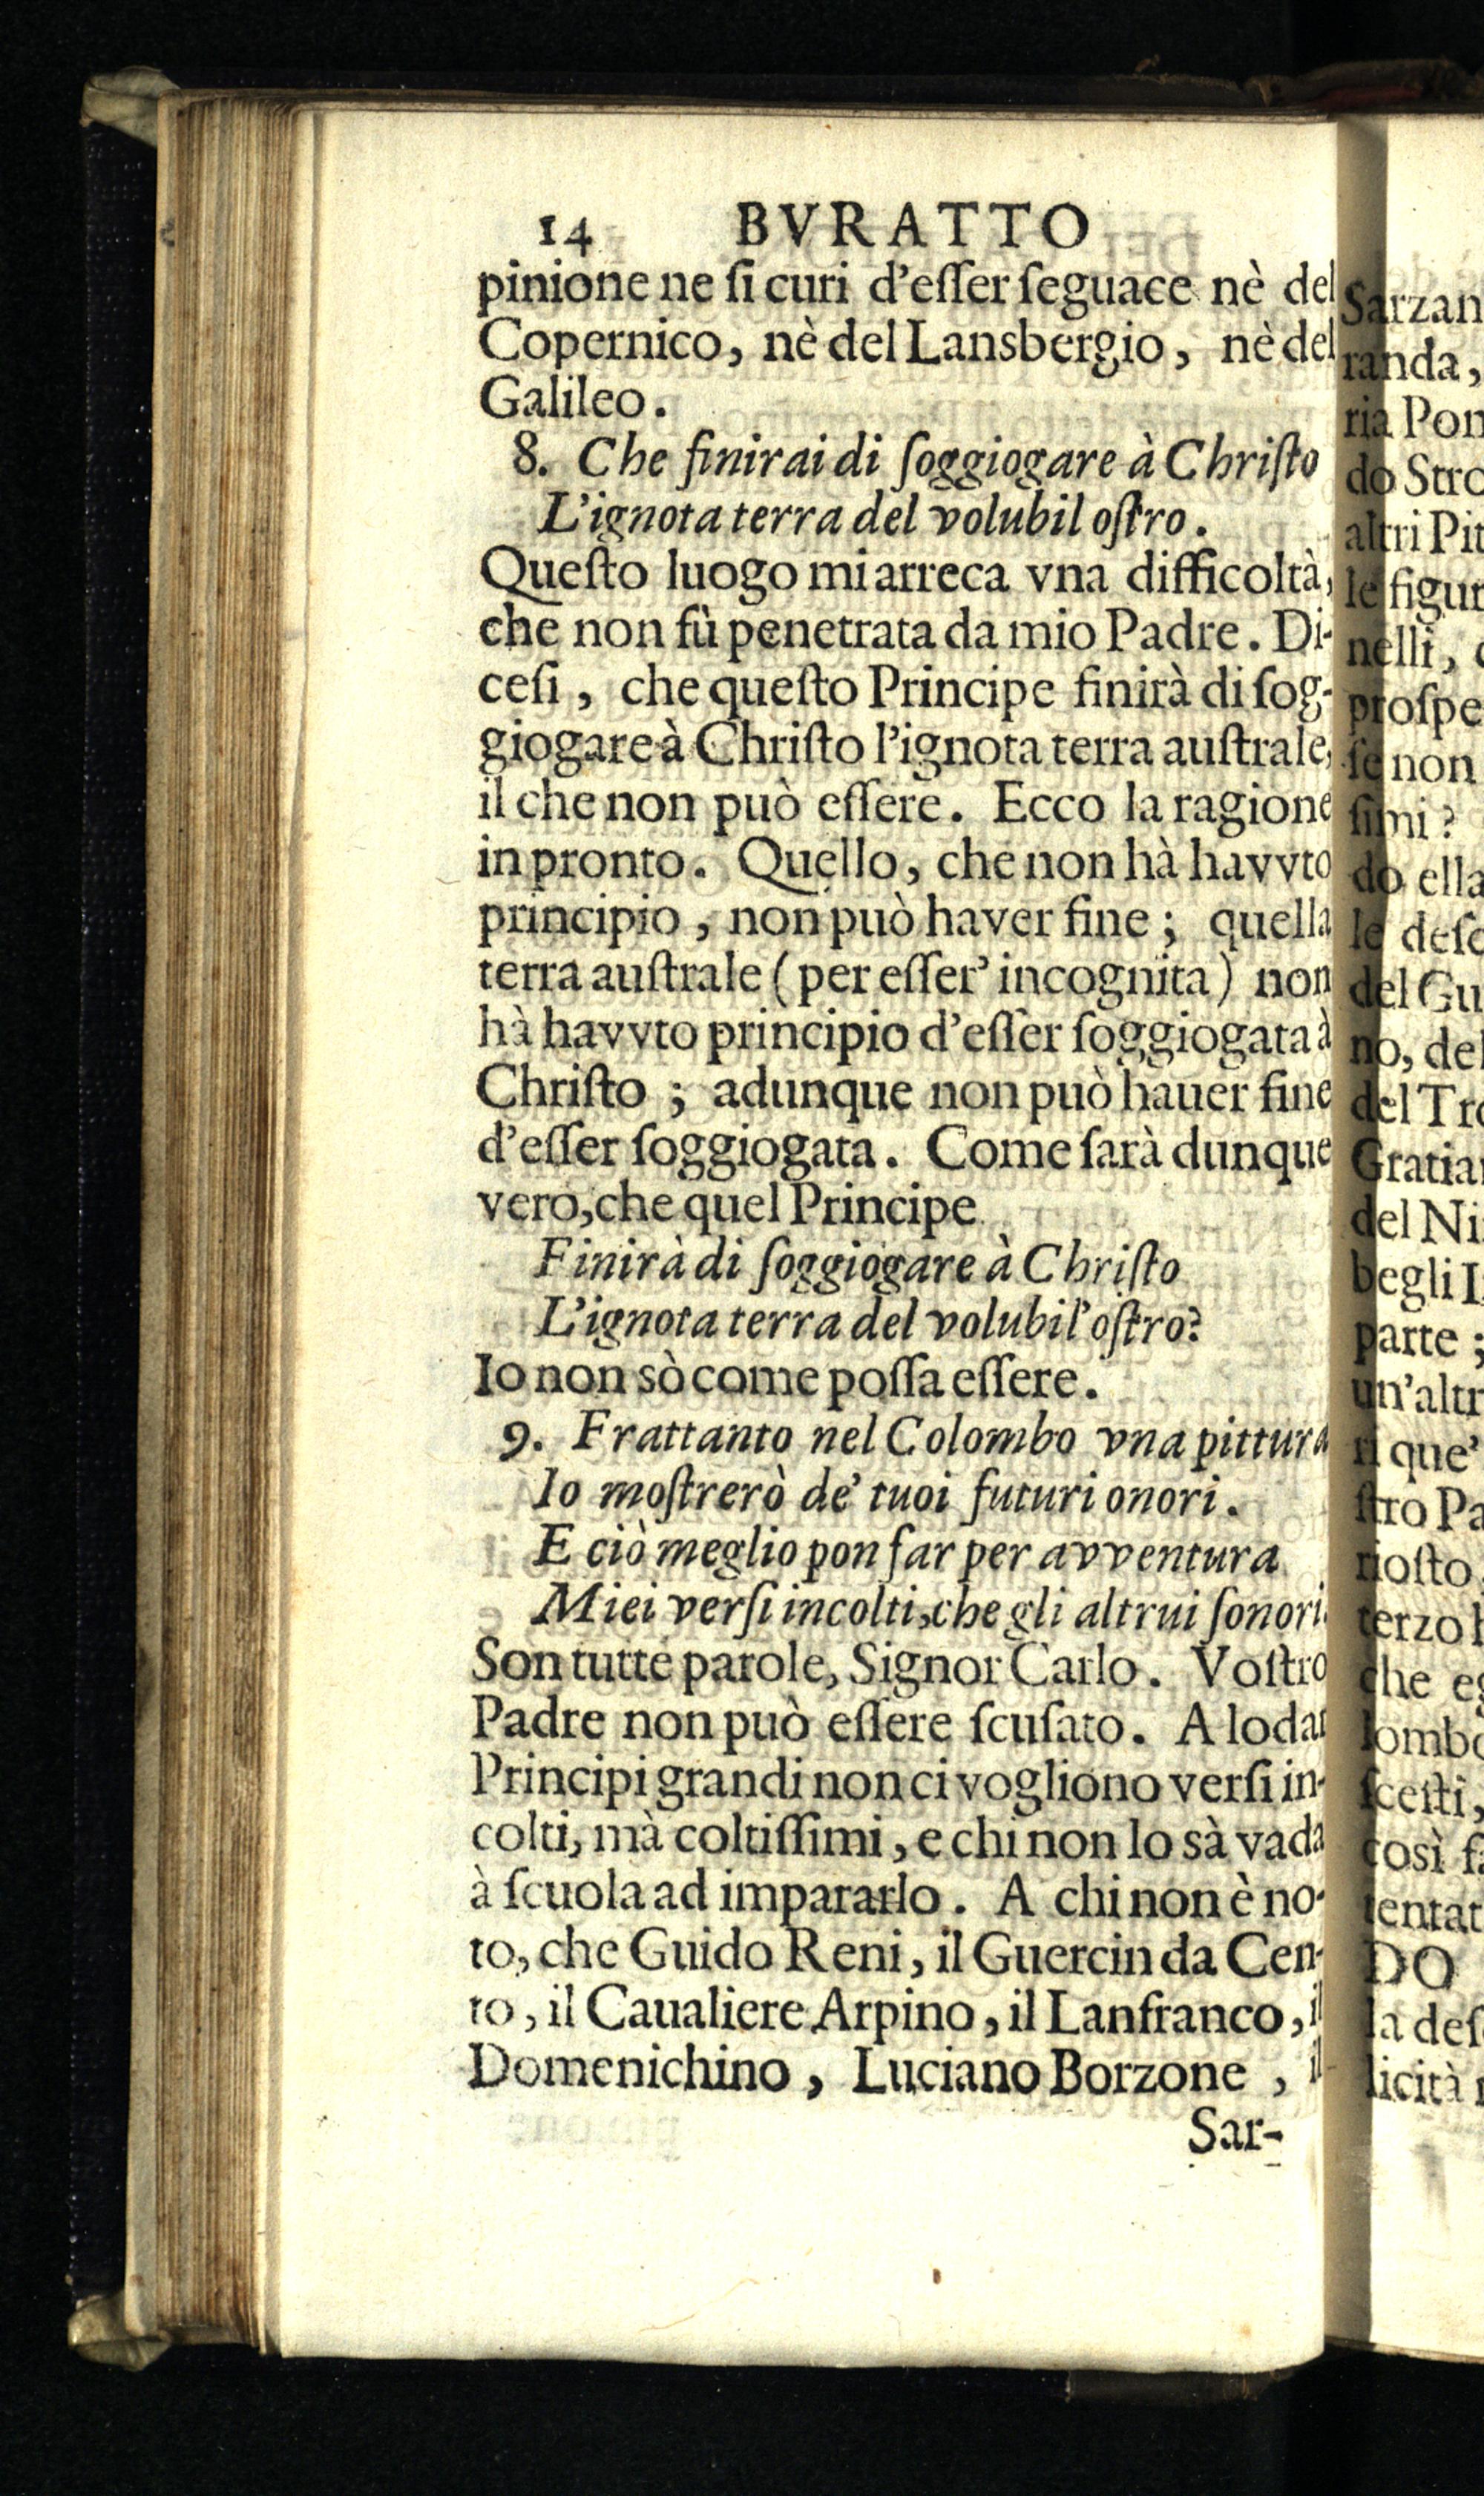 14 BVRATTO
pinione ne ſi curi d'eſſer ſeguace nè del
Copernico, nè del Lansbergio, nè del
Galileo.
8. Che finirai di ſoggiogare à Chriſto
L'ignota terra del volubil oſtro.
Queſto luogo mi arreca vna difficoltà,
che non fù penetrata da mio Padre. Di-
ceſi, che queſto Principe finirà di ſog-
giogare à Chriſto l'ignota terra auſtrale,
il che non può eſſere. Ecco la ragione
in pronto. Quello, che non hà havvto
principio, non può haver fine; quella
terra auſtrale (per eſſer' incognita) non
hà havvto principio d'eſſer ſoggiogata à
Chriſto; adunque non può hauer fine
d'eſſer ſoggiogata. Come ſarà dunque
vero, che quel Principe
Finirà di ſoggiogare à Chriſto
L'ignota terra del volubil'oſtro?
Io non sò come poſſa eſſere.
9. Frattanto nel Colombo vna pittura
Io moſtrerò de' tuoi futuri onori.
E ciò meglio pon far per avventura
Miei verſi incolti, che gli altrui ſonori.
Son tutte parole, Signor Carlo. Voſtro
Padre non può eſſere ſcuſato. A lodar
Principi grandi non ci vogliono verſi in-
colti, mà coltiſſimi, e chi non lo sà vada
à ſcuola ad impararlo. A chi non è no-
to, che Guido Reni, il Guercin da Cen-
to, il Caualiere Arpino, il Lanfranco, il
Domenichino, Luciano Borzone, il
Sar-
Sarzan
randa,
ria Pon
do Stro
altri Pit
le figur
nelli,
proſpe
ſe non
ſimi?
do ella
le deſc
del Gu
no, del
del Tro
Gratia
del Ni
begli I
parte;
un'altr
ri que'
ſtro Pa
rioſto
terzo
che eg
lombo
ſceſti,
così f
tentat
DO
la deſ
licità